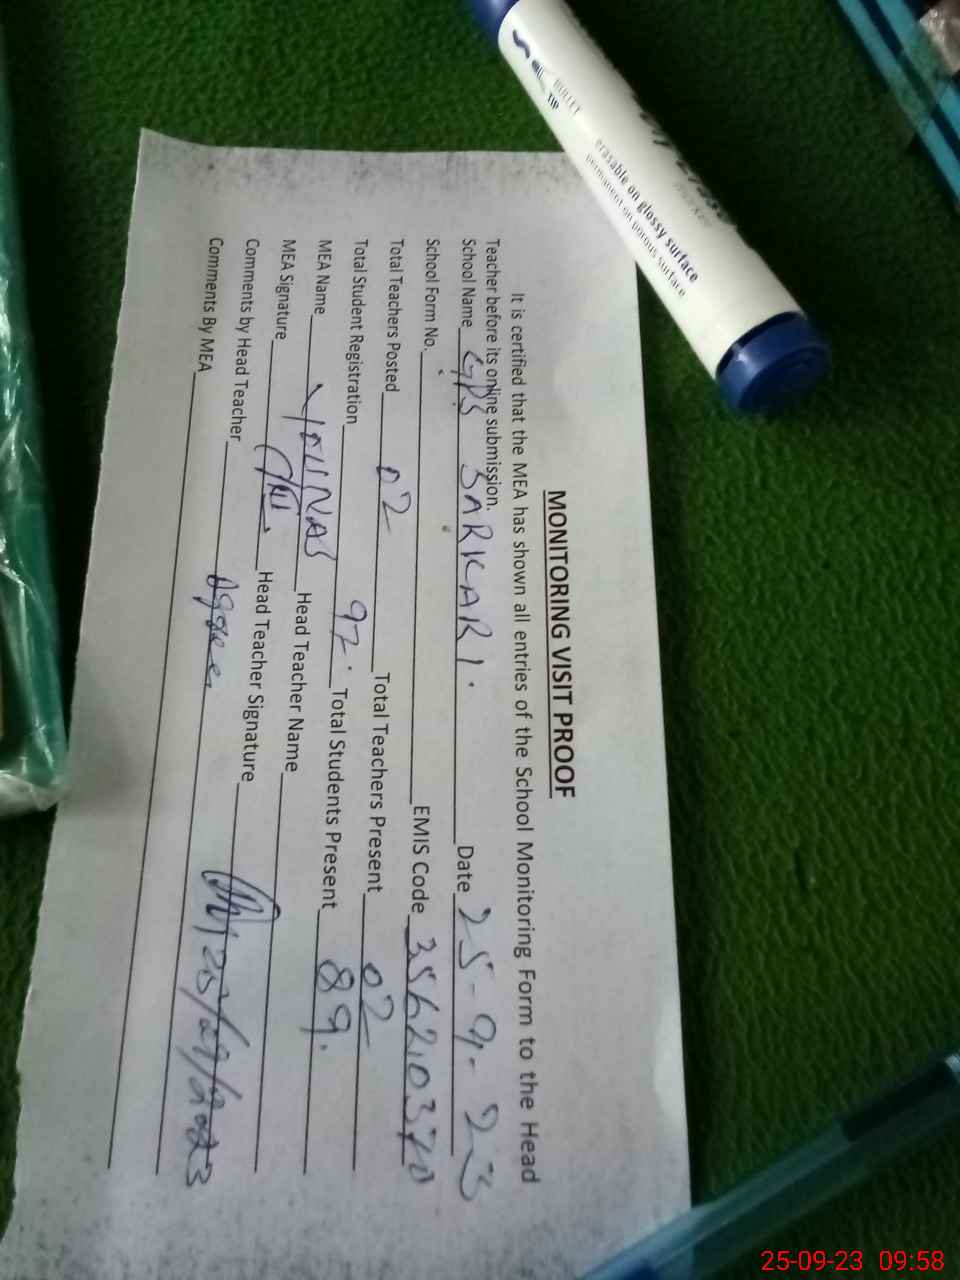 MONITORING VISIT PROOF
It is certified that the MEA has shown all entries of the School Monitoring Form to the Head
Teacher before its online submission.
School Name GPS SARKARI. Date 25-9-23
School Form No. EMIS Code 356210370
Total Teachers Posted 02 Total Teachers Present 02
Total Student Registration 97. Total Students Present 89.
MEA Name YOUNAS Head Teacher Name
MEA Signature Head Teacher Signature
Comments by Head Teacher Agree
Comments By MEA
BULLET
TIP
erasable on glossy surface
permanent on porous surface
25-09-23 09:58